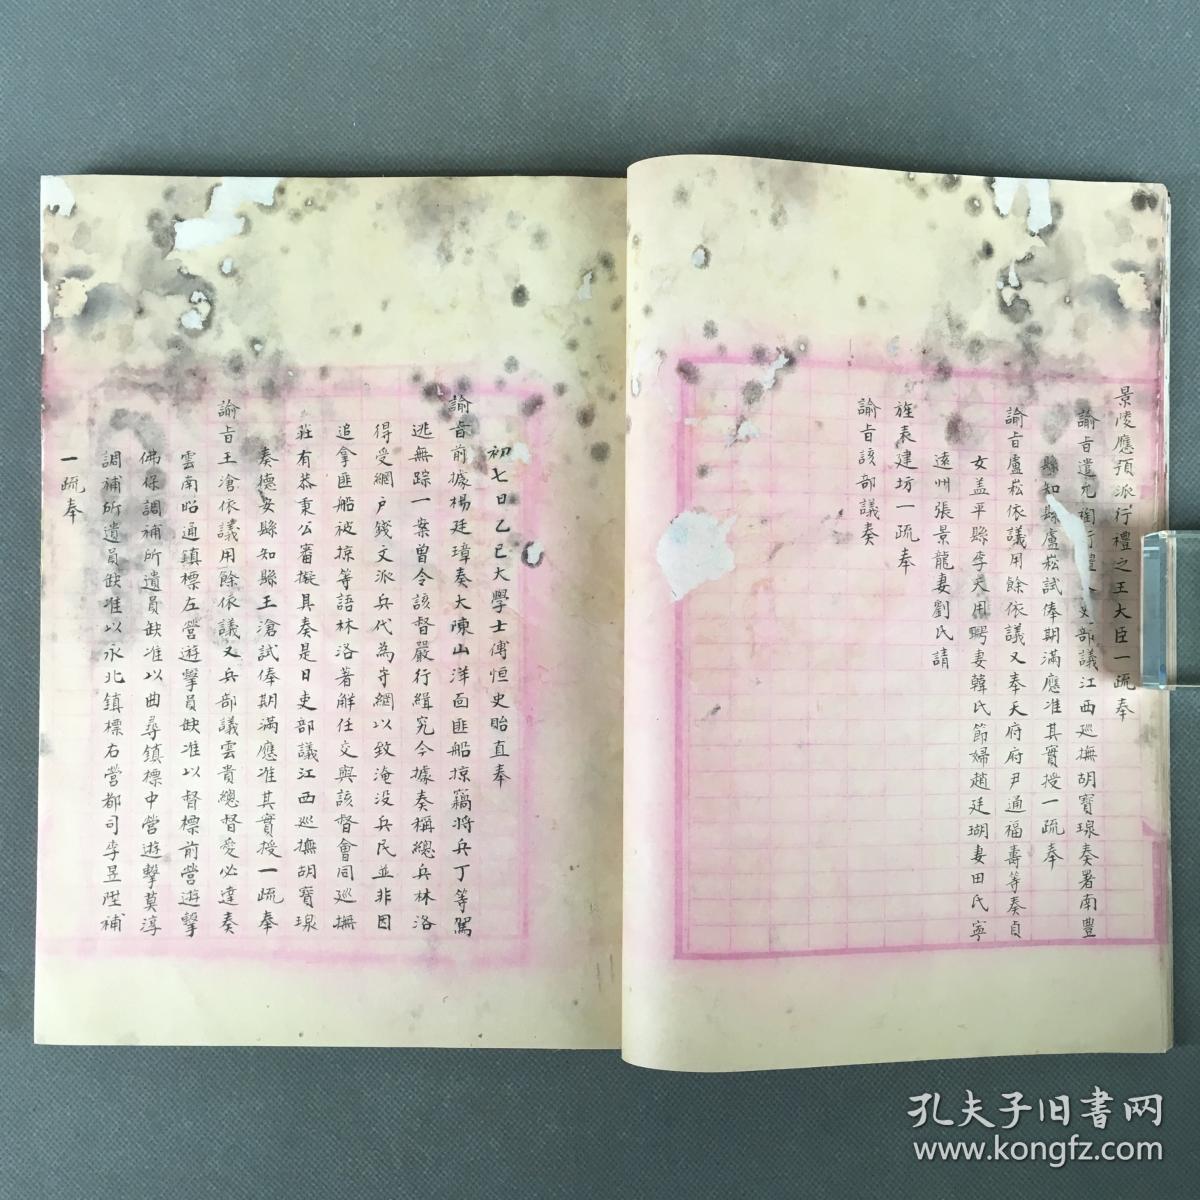 景陵應預派行禮之王大臣一疏奉
諭旨遣允禵行禮部議江西巡撫胡寶瑔奏署南豐
縣知縣盧崧試俸期滿應准其實授一疏奉
諭旨盧崧依議用餘依議又奉天府府尹通福壽等奏貞
女盖平縣李天用聘妻韓氏節婦趙廷瑚妻田氏寧
遠州張景龍妻劉氏請
旌表建坊一疏奉
諭旨該部議奏
初七日乙巳大學士傅恒史貽直奉
諭旨前據楊廷璋奏大陳山洋面匪船掠竊將兵丁等駕
逃無踪一案曾令該督嚴行緝究今據奏稱總兵林洛
得受網户錢文派兵代為守網以致淹没兵民並非因
追拿匪船被掠等語林洛著解任交與該督會同巡撫
莊有恭秉公審擬具奏是日吏部議江西巡撫胡寶瑔
奏德安縣知縣王滄試俸期滿應准其實授一疏奉
諭旨王滄依議用餘依議又兵部議雲貴總督愛必達奏
雲南昭通鎮標左營遊擊員缺准以督標前營遊擊
佛保調補所遺員缺准以曲尋鎮標中營遊擊莫淳
調補所遺員缺准以永北鎮標右營都司李昱陞補
一疏奉
孔夫子旧书网
www.kongfz.com